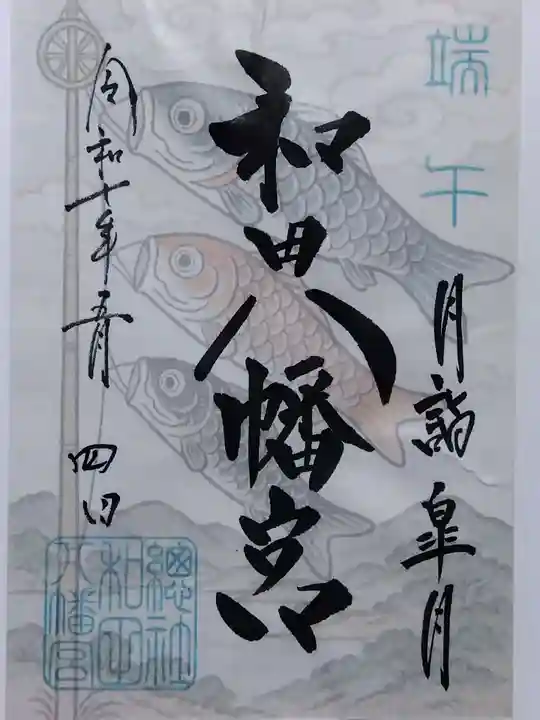 端午
月詣 皐月
和田八幡宮
令和七年五月
四日
總社
和田
八幡宮